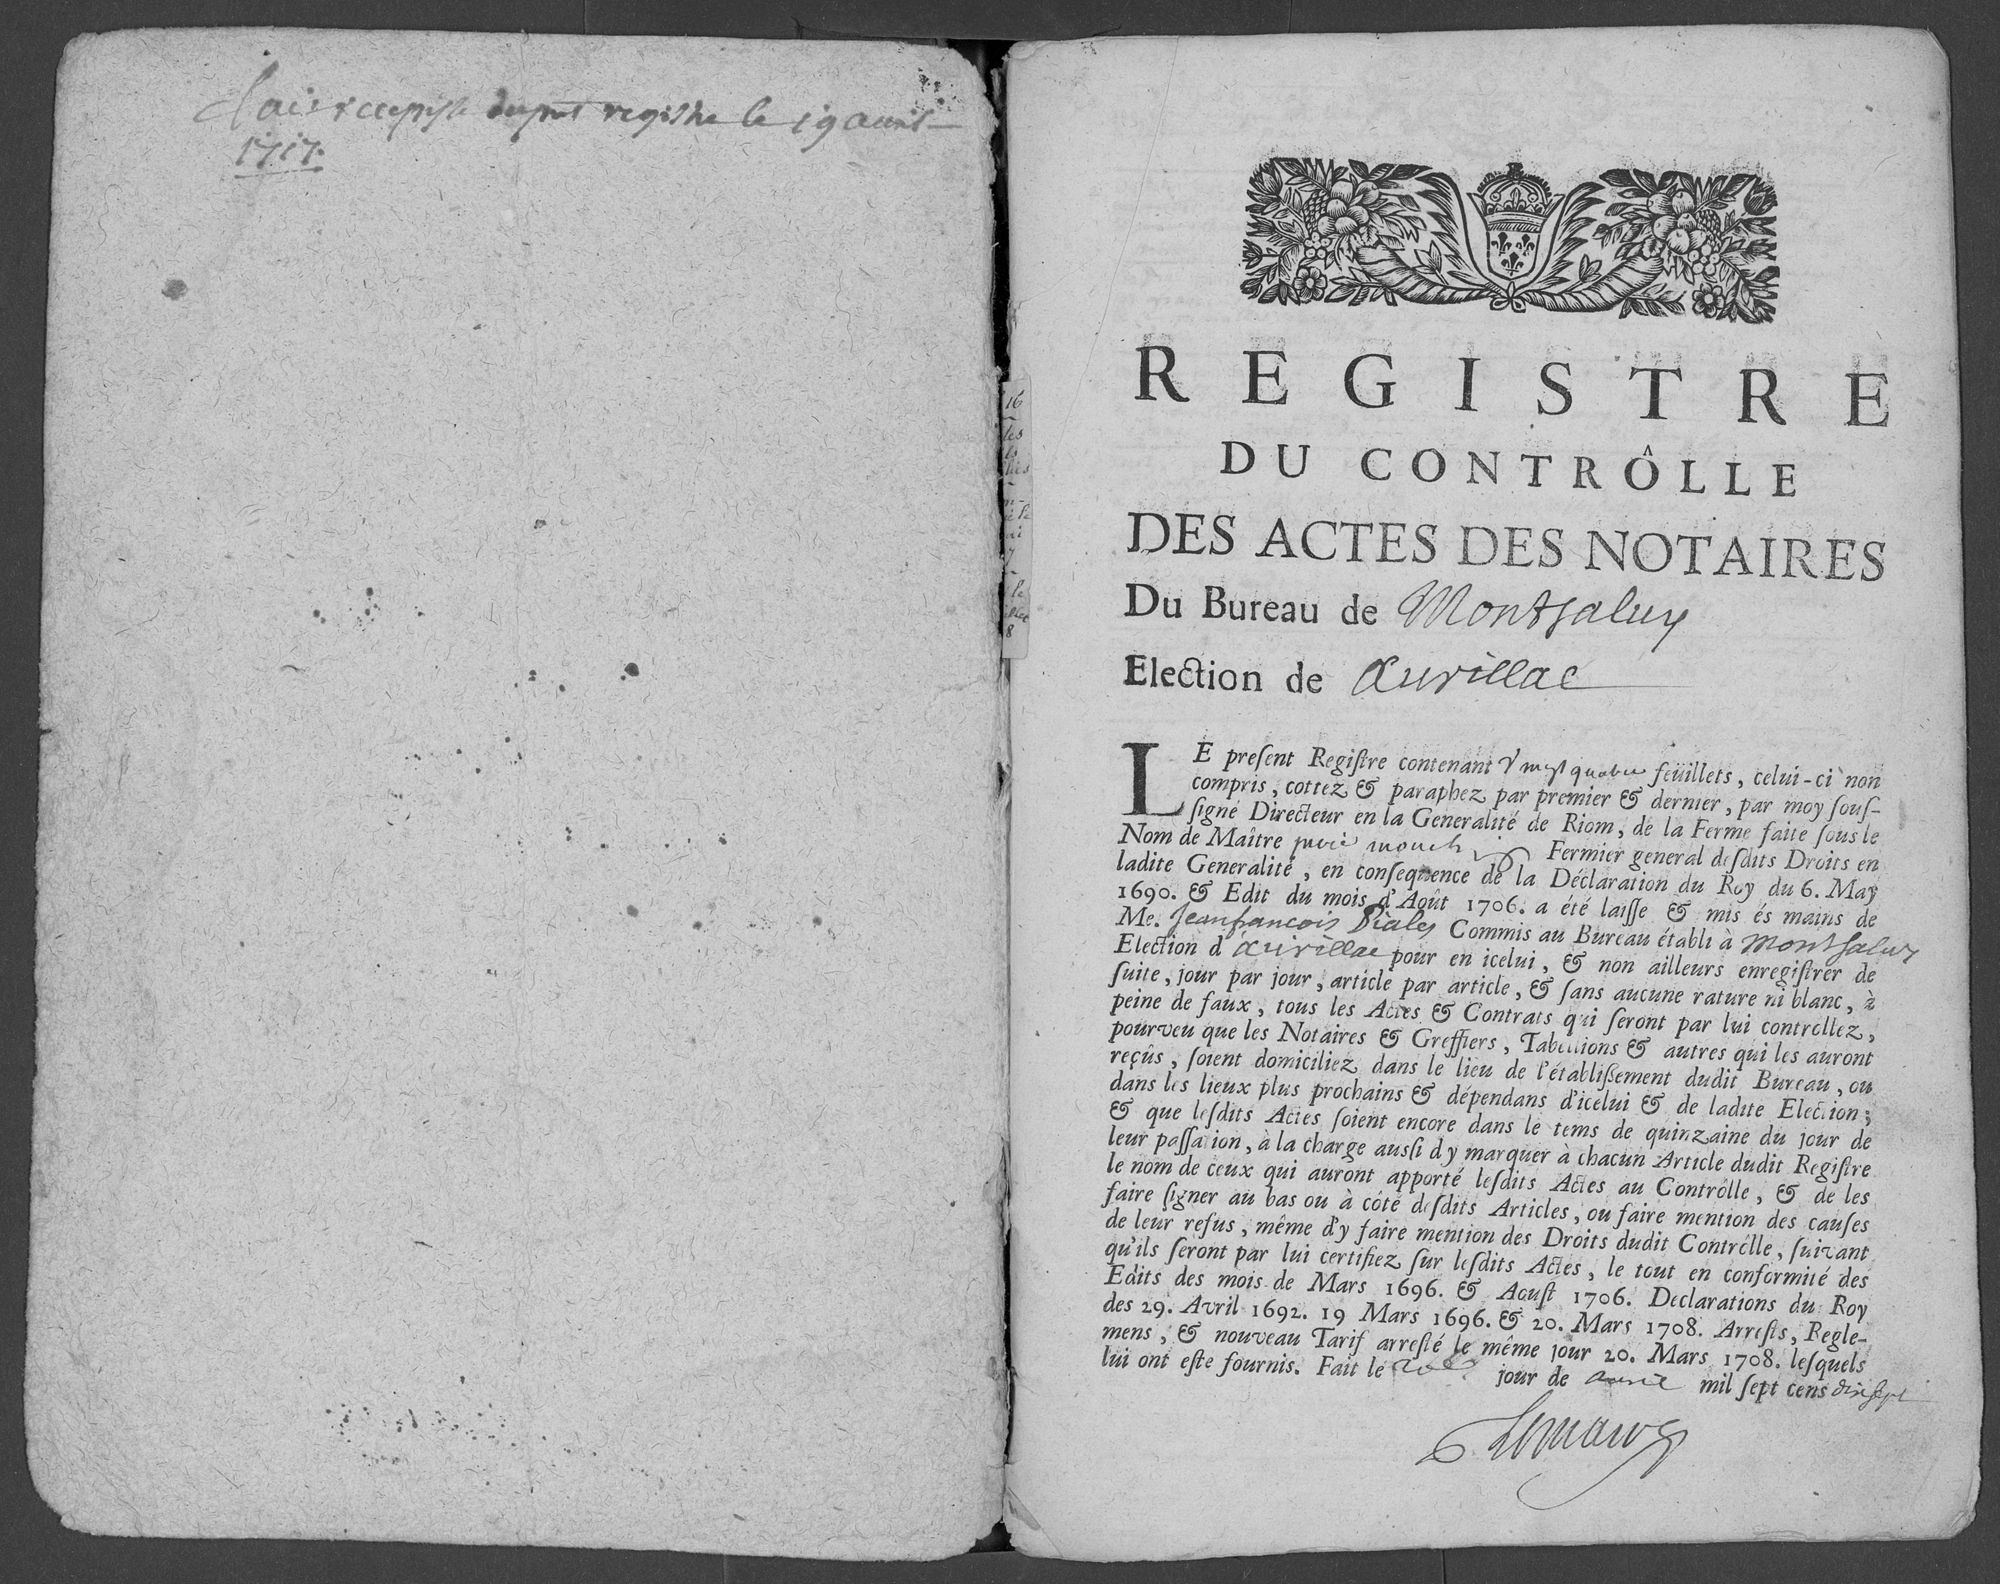 registre le 19 avril
1717
REGISTRE
DU CONTRÔLLE
DES ACTES DES NOTAIRES
Du Bureau de Montsaluy
Election de Aurillac
LE preſent Regiſtre contenant vingt quatre feüillets, celui-ci non
compris, cottez & paraphez par premier & dernier, par moy ſouſ-
ſigné Directeur en la Generalité de Riom, de la Ferme faite ſous le
Nom de Maître Fermier general deſdits Droits en
ladite Generalité, en conſequence de la Déclaration du Roy du 6. May
1690. & Edit du mois d'Août 1706. a été laiſſe & mis és mains de
Me. Jeanfrancois Piales Commis au Bureau établi à Montsaluy
Election d'aurillac pour en icelui, & non ailleurs enregiſtrer de
ſuite, jour par jour, article par article, & ſans aucune rature ni blanc, à
peine de faux, tous les Actes & Contrats qui ſeront par lui contrôllez,
pourveu que les Notaires & Greffiers, Tabellions & autres qui les auront
reçûs, ſoient domiciliez dans le lieu de l'établiſſement dudit Bureau, ou
dans les lieux plus prochains & dépendans d'icelui & de ladite Election;
& que leſdits Actes ſoient encore dans le tems de quinzaine du jour de
leur paſſation, à la charge auſſi d'y marquer à chacun Article dudit Regiſtre
le nom de ceux qui auront apporté leſdits Actes au Contrôlle, & de les
faire ſigner au bas ou à côté deſdits Articles, ou faire mention des cauſes
de leur refus, même d'y faire mention des Droits dudit Contrôlle, ſuivant
qu'ils ſeront par lui certifiez ſur leſdits Actes, le tout en conformité des
Edits des mois de Mars 1696. & Aouſt 1706. Declarations du Roy
des 29. Avril 1692. 19 Mars 1696. & 20. Mars 1708. Arreſts, Regle-
mens, & nouveau Tarif arreſté le même jour 20. Mars 1708. leſquels
lui ont eſte fournis. Fait le jour de avril mil ſept cens dix sept